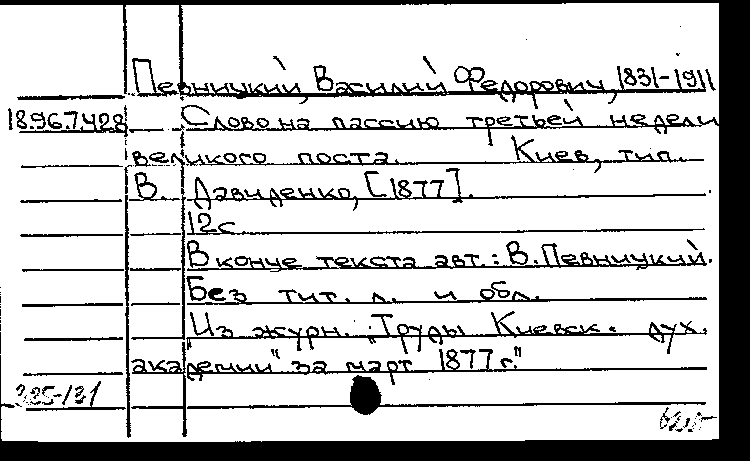 Певницкий, Василий Федорович, 1831-1911
18.96.7.428 Слово на пассию третьей недели
великого поста. Киев, тип.
В. Давиденко, [1877].
12с
В конце текста авт.: В. Певницкий.
Без тит. л. и обл.
"Из журн. "Труды Киевск. дух.
академии" за март 1877 г."
325-131